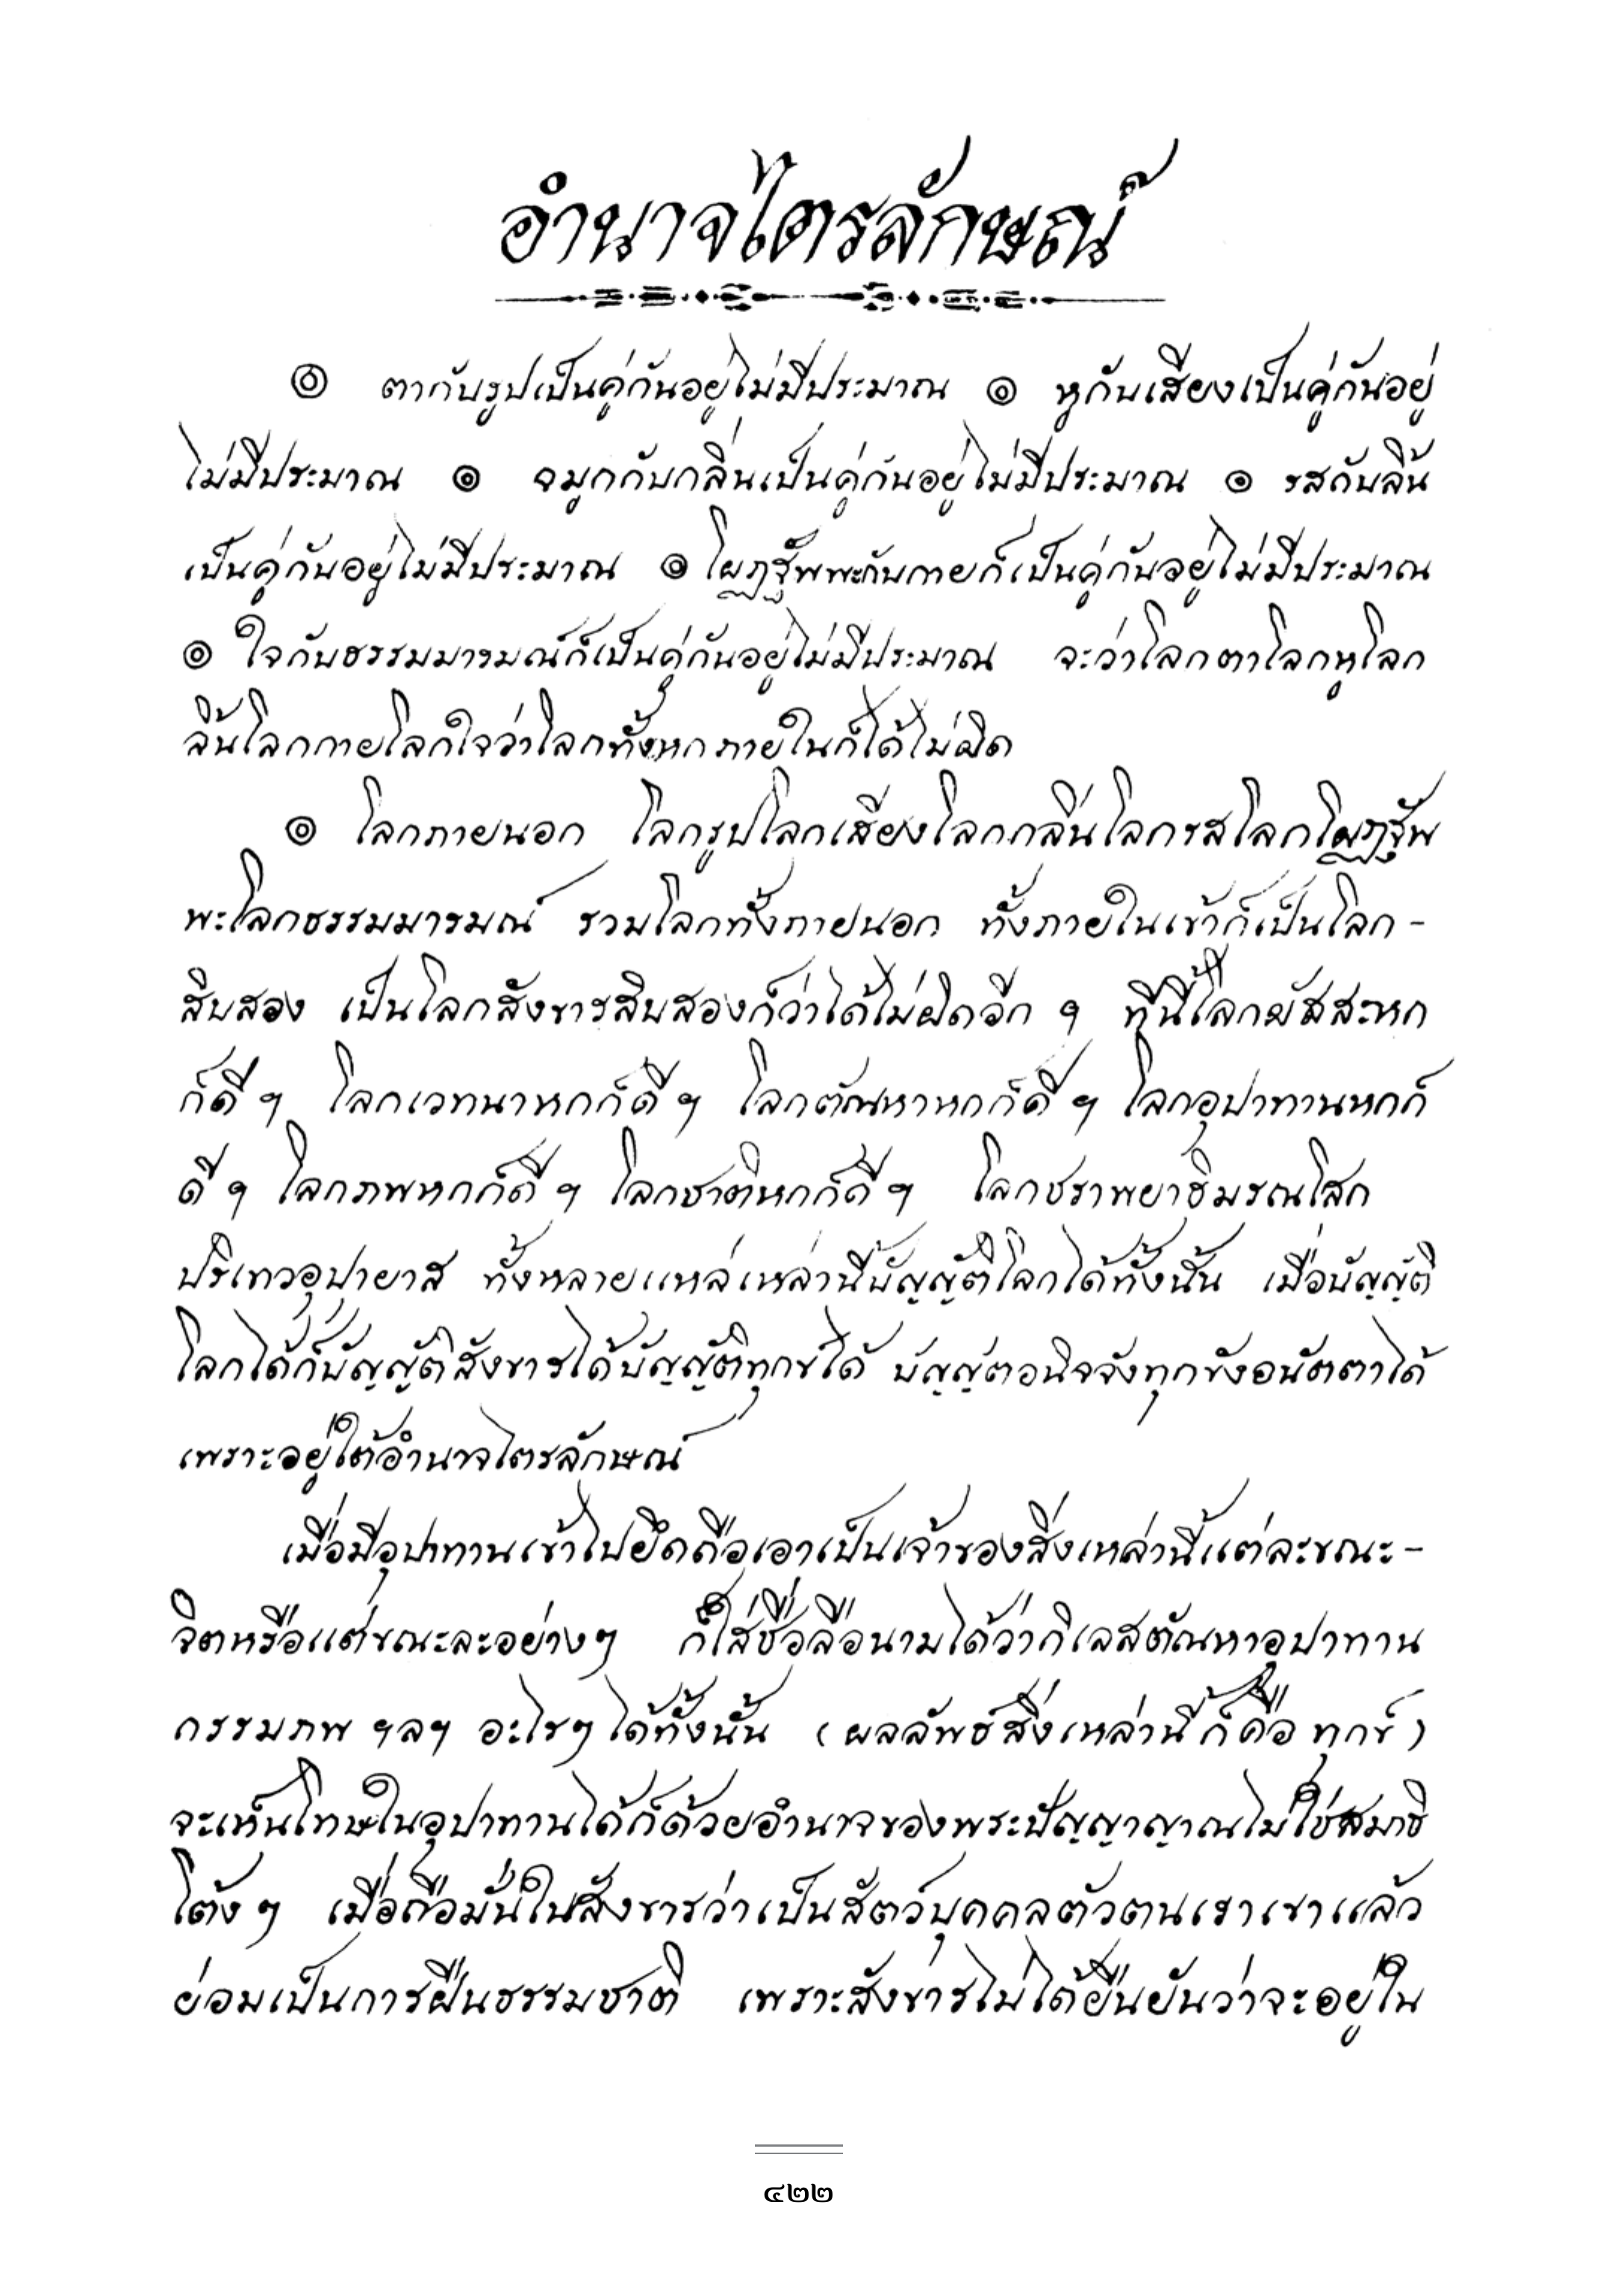 อำนาจไตรลักษณ์
๏ ตากับรูปเป็นคู่กันอยู่ไม่มีประมาณ ๏ หูกับเสียงเป็นคู่กันอยู่
ไม่มีประมาณ ๏ จมูกกับกลิ่นเป็นคู่กันอยู่ไม่มีประมาณ ๏ รสกับลิ้น
เป็นคู่กันอยู่ไม่มีประมาณ ๏ โผฏฐัพพะกับกายก็เป็นคู่กันอยู่ไม่มีประมาณ
๏ ใจกับธรรมมารมณ์ก็เป็นคู่กันอยู่ไม่มีประมาณ จะว่าโลกตาโลกหูโลก
ลิ้นโลกกายโลกใจว่าโลกทั้งหกภายในก็ได้ไม่ผิด
๏ โลกภายนอก โลกรูปโลกเสียงโลกกลิ่นโลกรสโลกโผฏฐัพ
พะโลกธรรมมารมณ์ รวมโลกทั้งภายนอก ทั้งภายในเข้าก็เป็นโลก-
สิบสอง เป็นโลกสังขารสิบสองก็ว่าได้ไม่ผิดอีก ฯ ทีนี้โลกผัสสะหก
ก็ดี ฯ โลกเวทนาหกก็ดี ฯ โลกตัณหาหกก็ดี ฯ โลกอุปาทานหกก็
ดี ฯ โลกภพหกก็ดี ฯ โลกชาติหกก็ดี ฯ โลกชราพยาธิมรณโสก
ปริเทวอุปายาส ทั้งหลายแหล่เหล่านี้บัญญัติโลกได้ทั้งนั้น เมื่อบัญญัติ
โลกได้ก็บัญญัติสังขารได้บัญญัติทุกข์ได้ บัญญัตอนิจจังทุกขังอนัตตาได้
เพราะอยู่ใต้อำนาจไตรลักษณ์
เมื่อมีอุปาทานเข้าไปยึดถือเอาเป็นเจ้าของสิ่งเหล่านี้แต่ละขณะ-
จิตหรือแต่ขณะละอย่างๆ ก็ใส่ชื่อลือนามได้ว่ากิเลสตัณหาอุปาทาน
กรรมภพ ฯลฯ อะไรๆ ได้ทั้งนั้น (ผลลัพธ์สิ่งเหล่านี้ก็คือ ทุกข์)
จะเห็นโทษในอุปาทานได้ก็ด้วยอำนาจของพระปัญญาญาณไม่ใช่สมาธิ
โต้งๆ เมื่อถือมั่นในสังขารว่าเป็นสัตว์บุคคลตัวตนเราเขาแล้ว
ย่อมเป็นการฝืนธรรมชาติ เพราะสังขารไม่ได้ยืนยันว่าจะอยู่ใน
๔๒๒